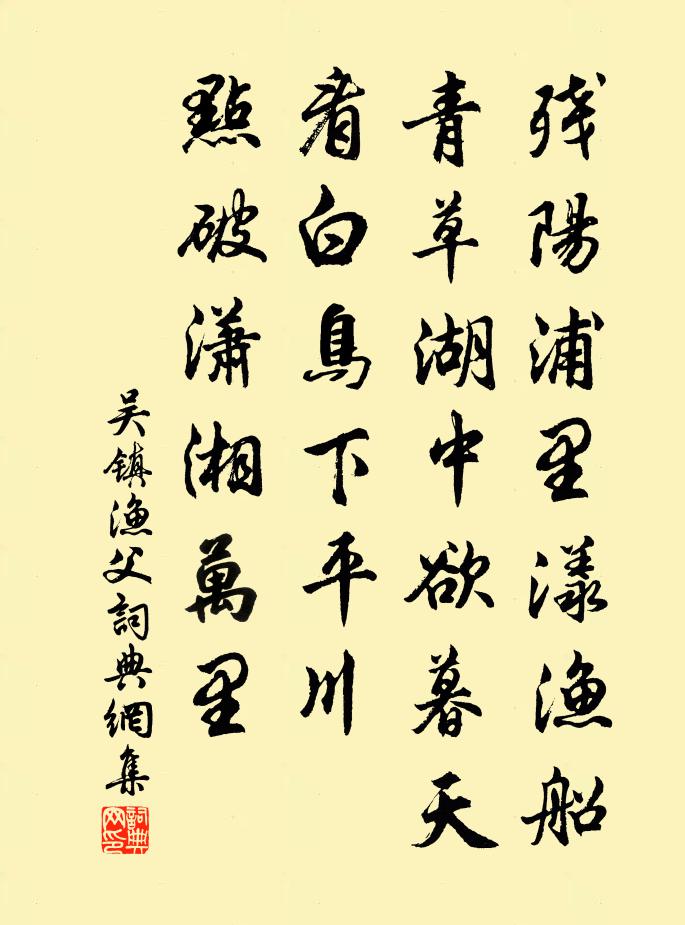 残陽浦里漾漁船
青草湖中欲暮天
看白鳥下平川
點破瀟湘萬里
吴镇漁父詞典網集
詞典网印